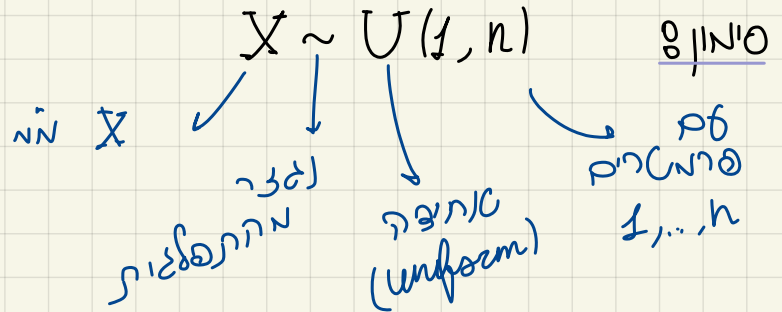 סימון:
X ~ U(1, n)
X מ"מ
נגזר
מהתפלגות
אחידה
(uniform)
עם
פרמטרים
1,..,n